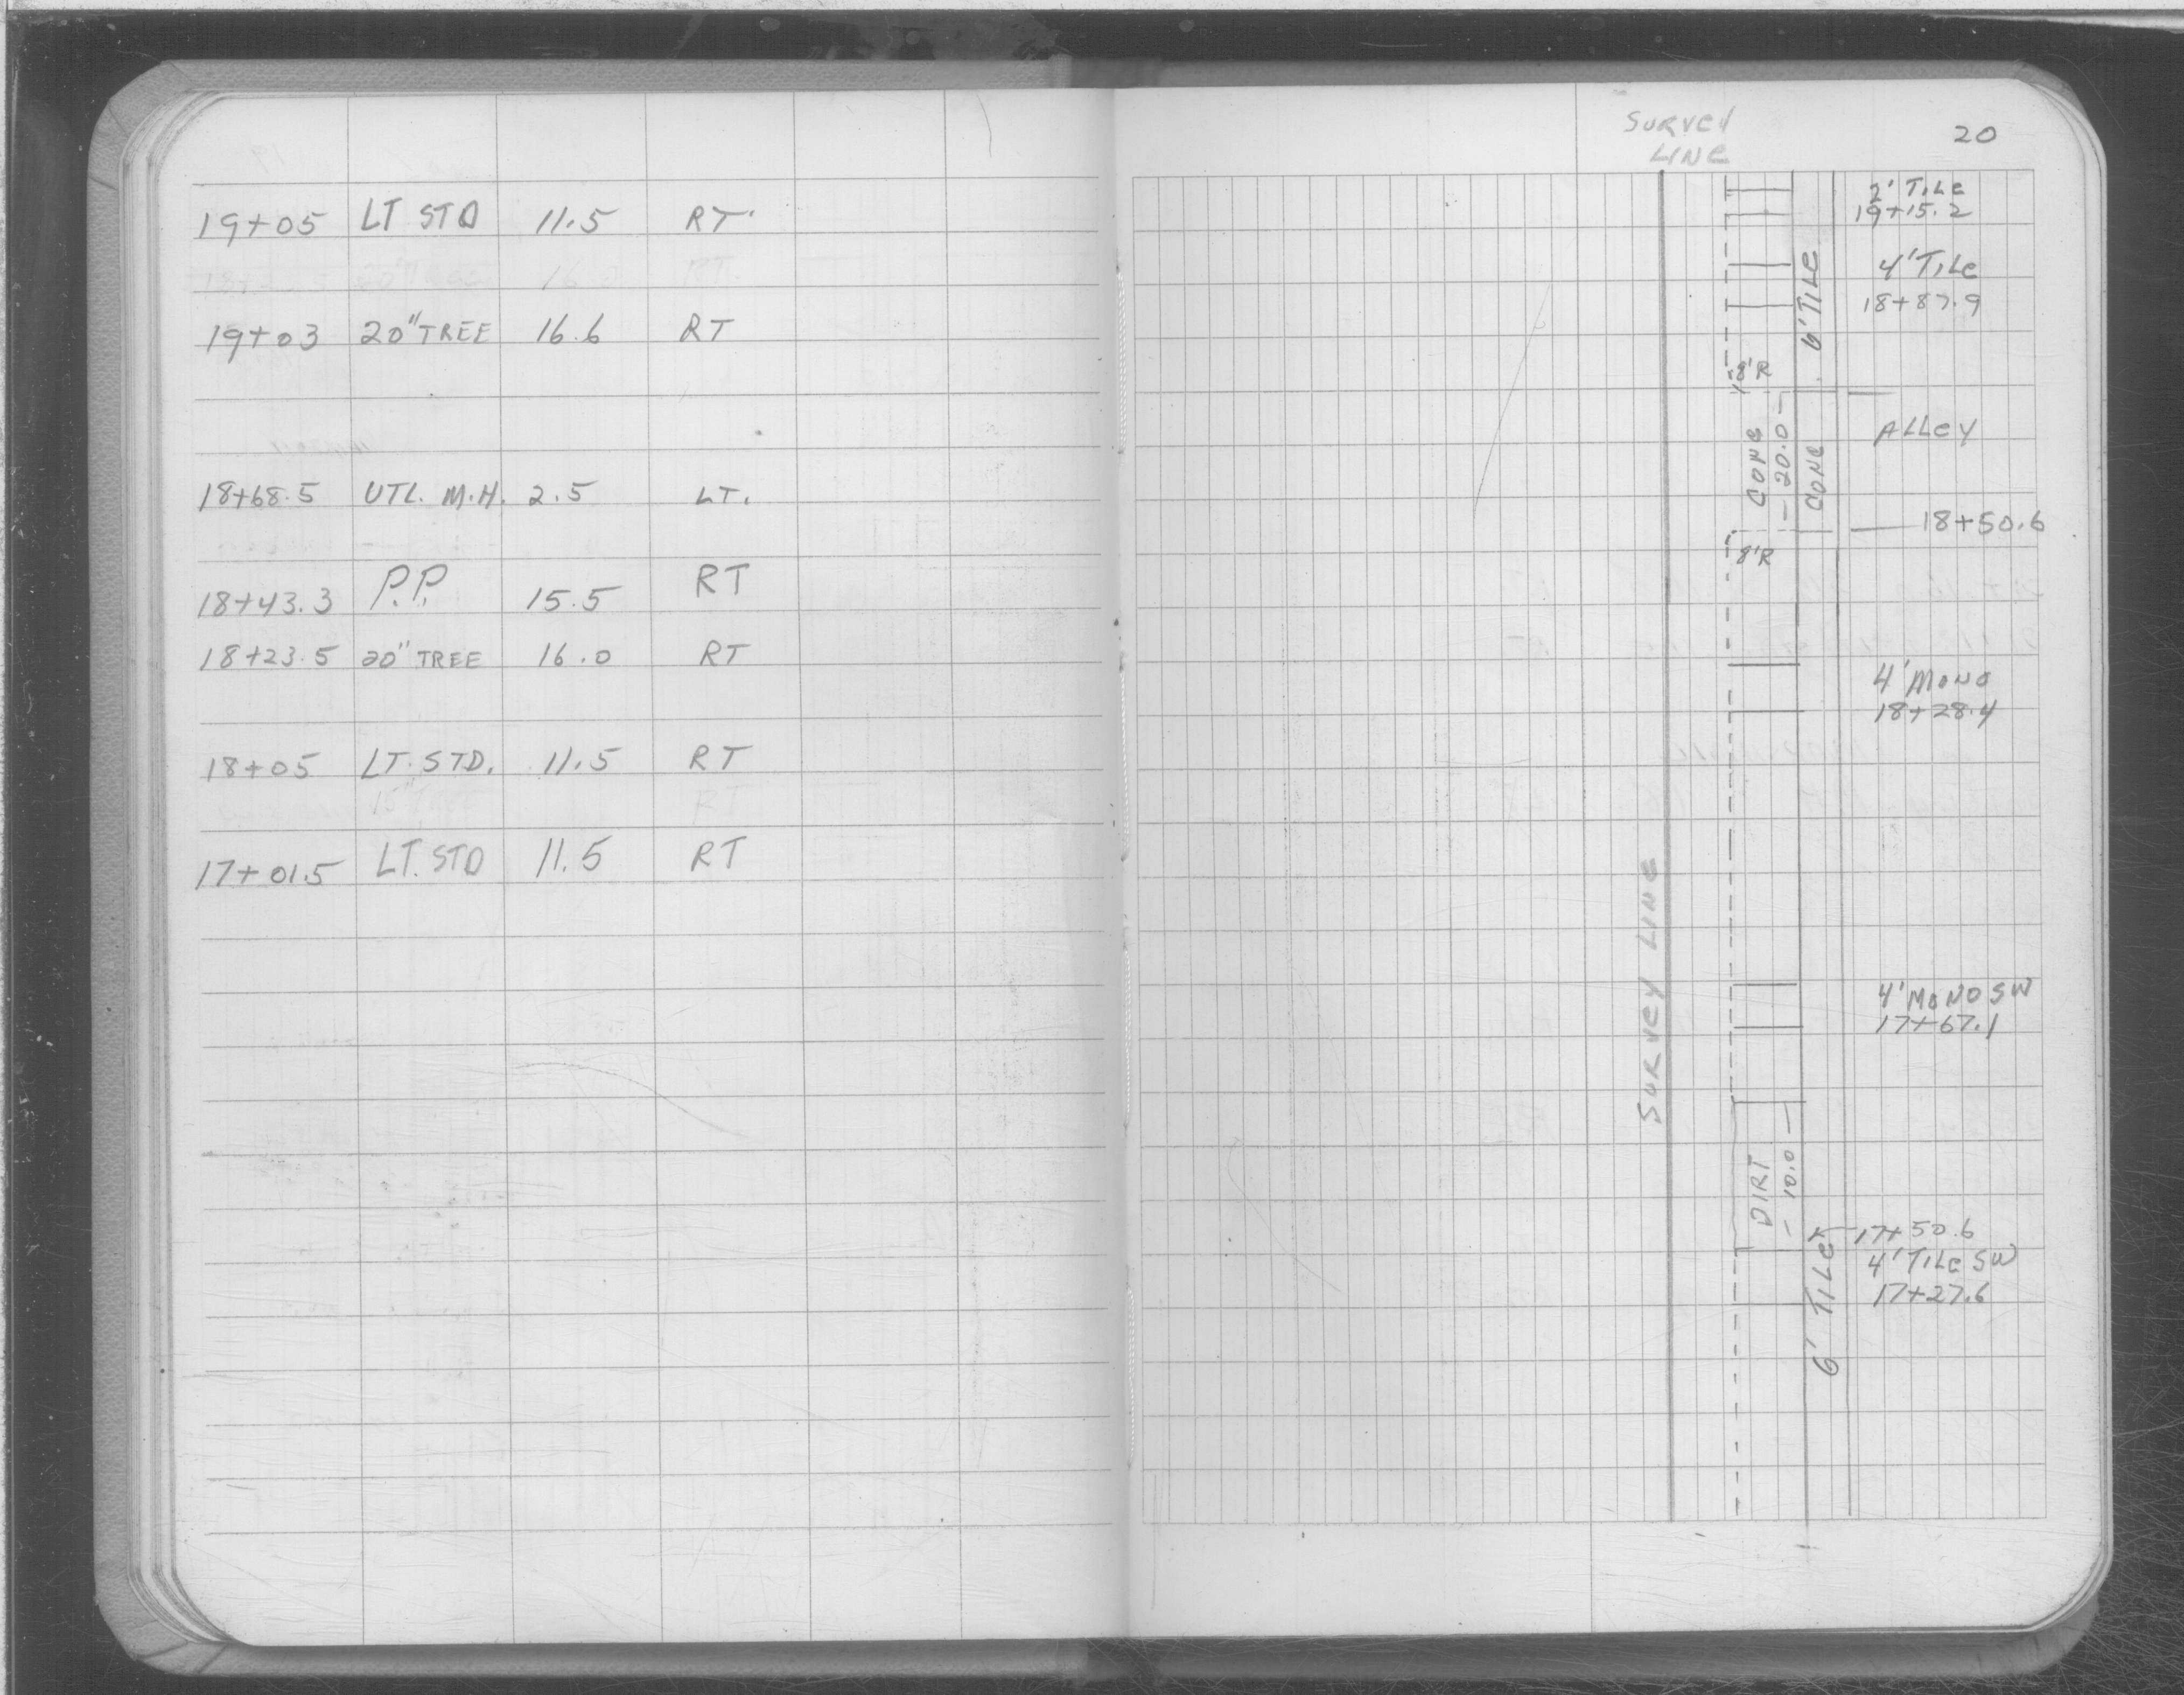 19+05 LT STD 11.5 RT.
19+03 20" TREE 16.6 RT
18+68.5 UTL. M.H. 2.5 LT.
18+43.3 P.P. 15.5 RT
18+23.5 20" TREE 16.0 RT
18+05 LT. STD. 11.5 RT
15" TREE RT
17+01.5 LT. STD 11.5 RT
20
SURVEY
LINE
2' TILE
19+15.2
4' TILE
18+87.9
6' TILE
8'R
ALLEY
CONC
-20.0-
CONC
18+50.6
8'R
4' MONO
18+28.4
SURVEY LINE
4' MONO SW
17+67.1
DIRT
-10.0-
17+50.6
4' TILE SW
17+27.6
6' TILE